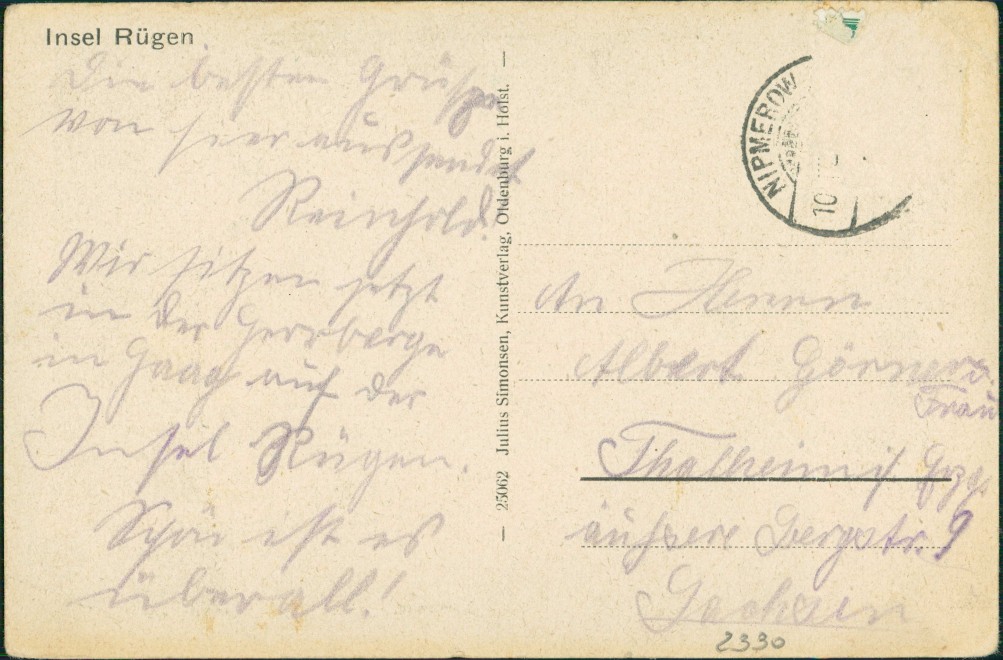 Insel Rügen
Die besten Grüße
von hier aus sendet
Reinhold.
Wir sitzen jetzt
in der Herrberge
in auf der
Insel Rügen.
Schön ist es
überall!
— 25062 Julius Simonsen, Kunstverlag, Oldenburg i. Holst. —
NIPMEROW
10
An Herrn
Albert
Frau
Thalheim i/ Erzg.
äußere Bergstr. 9
Sachsen
2330